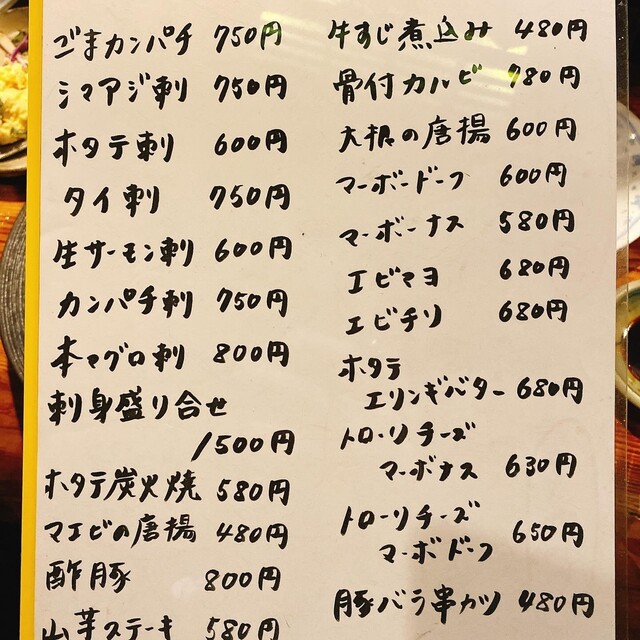 ごまカンパチ 750円
シマアジ刺 750円
ホタテ刺 600円
タイ刺 750円
生サーモン刺 600円
カンパチ刺 750円
本マグロ刺 800円
刺身盛り合せ
1500円
ホタテ炭火焼 580円
マエビの唐揚 480円
酢豚 800円
山芋ステーキ 580円
牛すじ煮込み 480円
骨付カルビ 780円
大根の唐揚 600円
マーボードーフ 600円
マーボーナス 580円
エビマヨ 680円
エビチリ 680円
ホタテ
エリンギバター 680円
トローリチーズ
マーボナス 630円
トローリチーズ
マーボドーフ 650円
豚バラ串カツ 480円